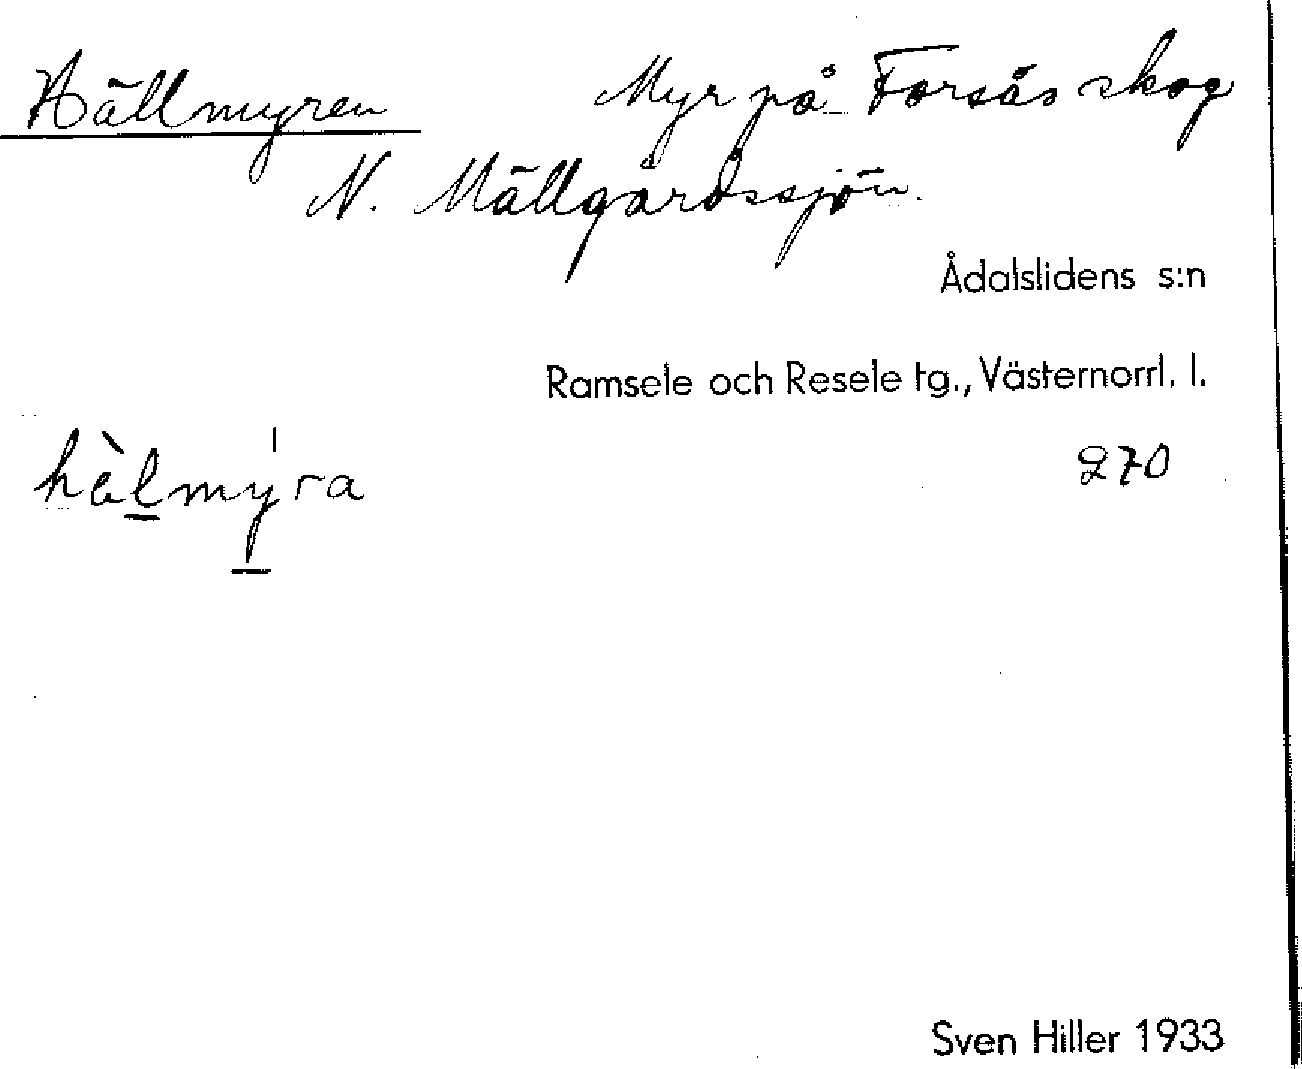 Hällmyren Myr på Forsås skog
N. Mällgårdssjön.
Ådalslidens s:n
Ramsele och Resele tg., Västernorrl. l.
270
hàlmy̍ra
Sven Hiller 1933